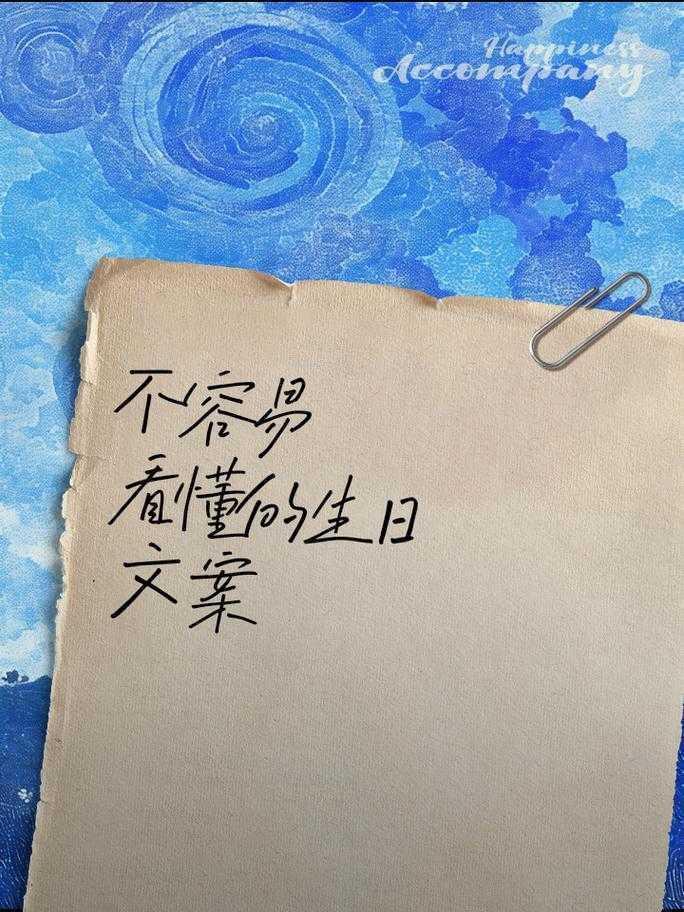 Happiness
Accompany
不容易
看懂的生日
文案